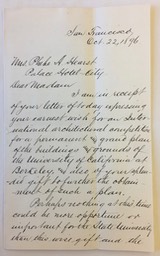 San Francisco
Oct. 22, 1896
Mrs. Phebe A. Hearst
Palace Hotel - City.
Dear Madam
I am in receipt
of your letter of today expressing
your earnest wish for an Inter-
national architectural competition
for a permanent & grand plan
of the buildings & grounds of
the University of California at
Berkeley, & also of your splen-
did gift to further the obtain-
ment of such a plan.
Perhaps nothing at this time
could be more opportune or
important for the State University
than this wise gift and the